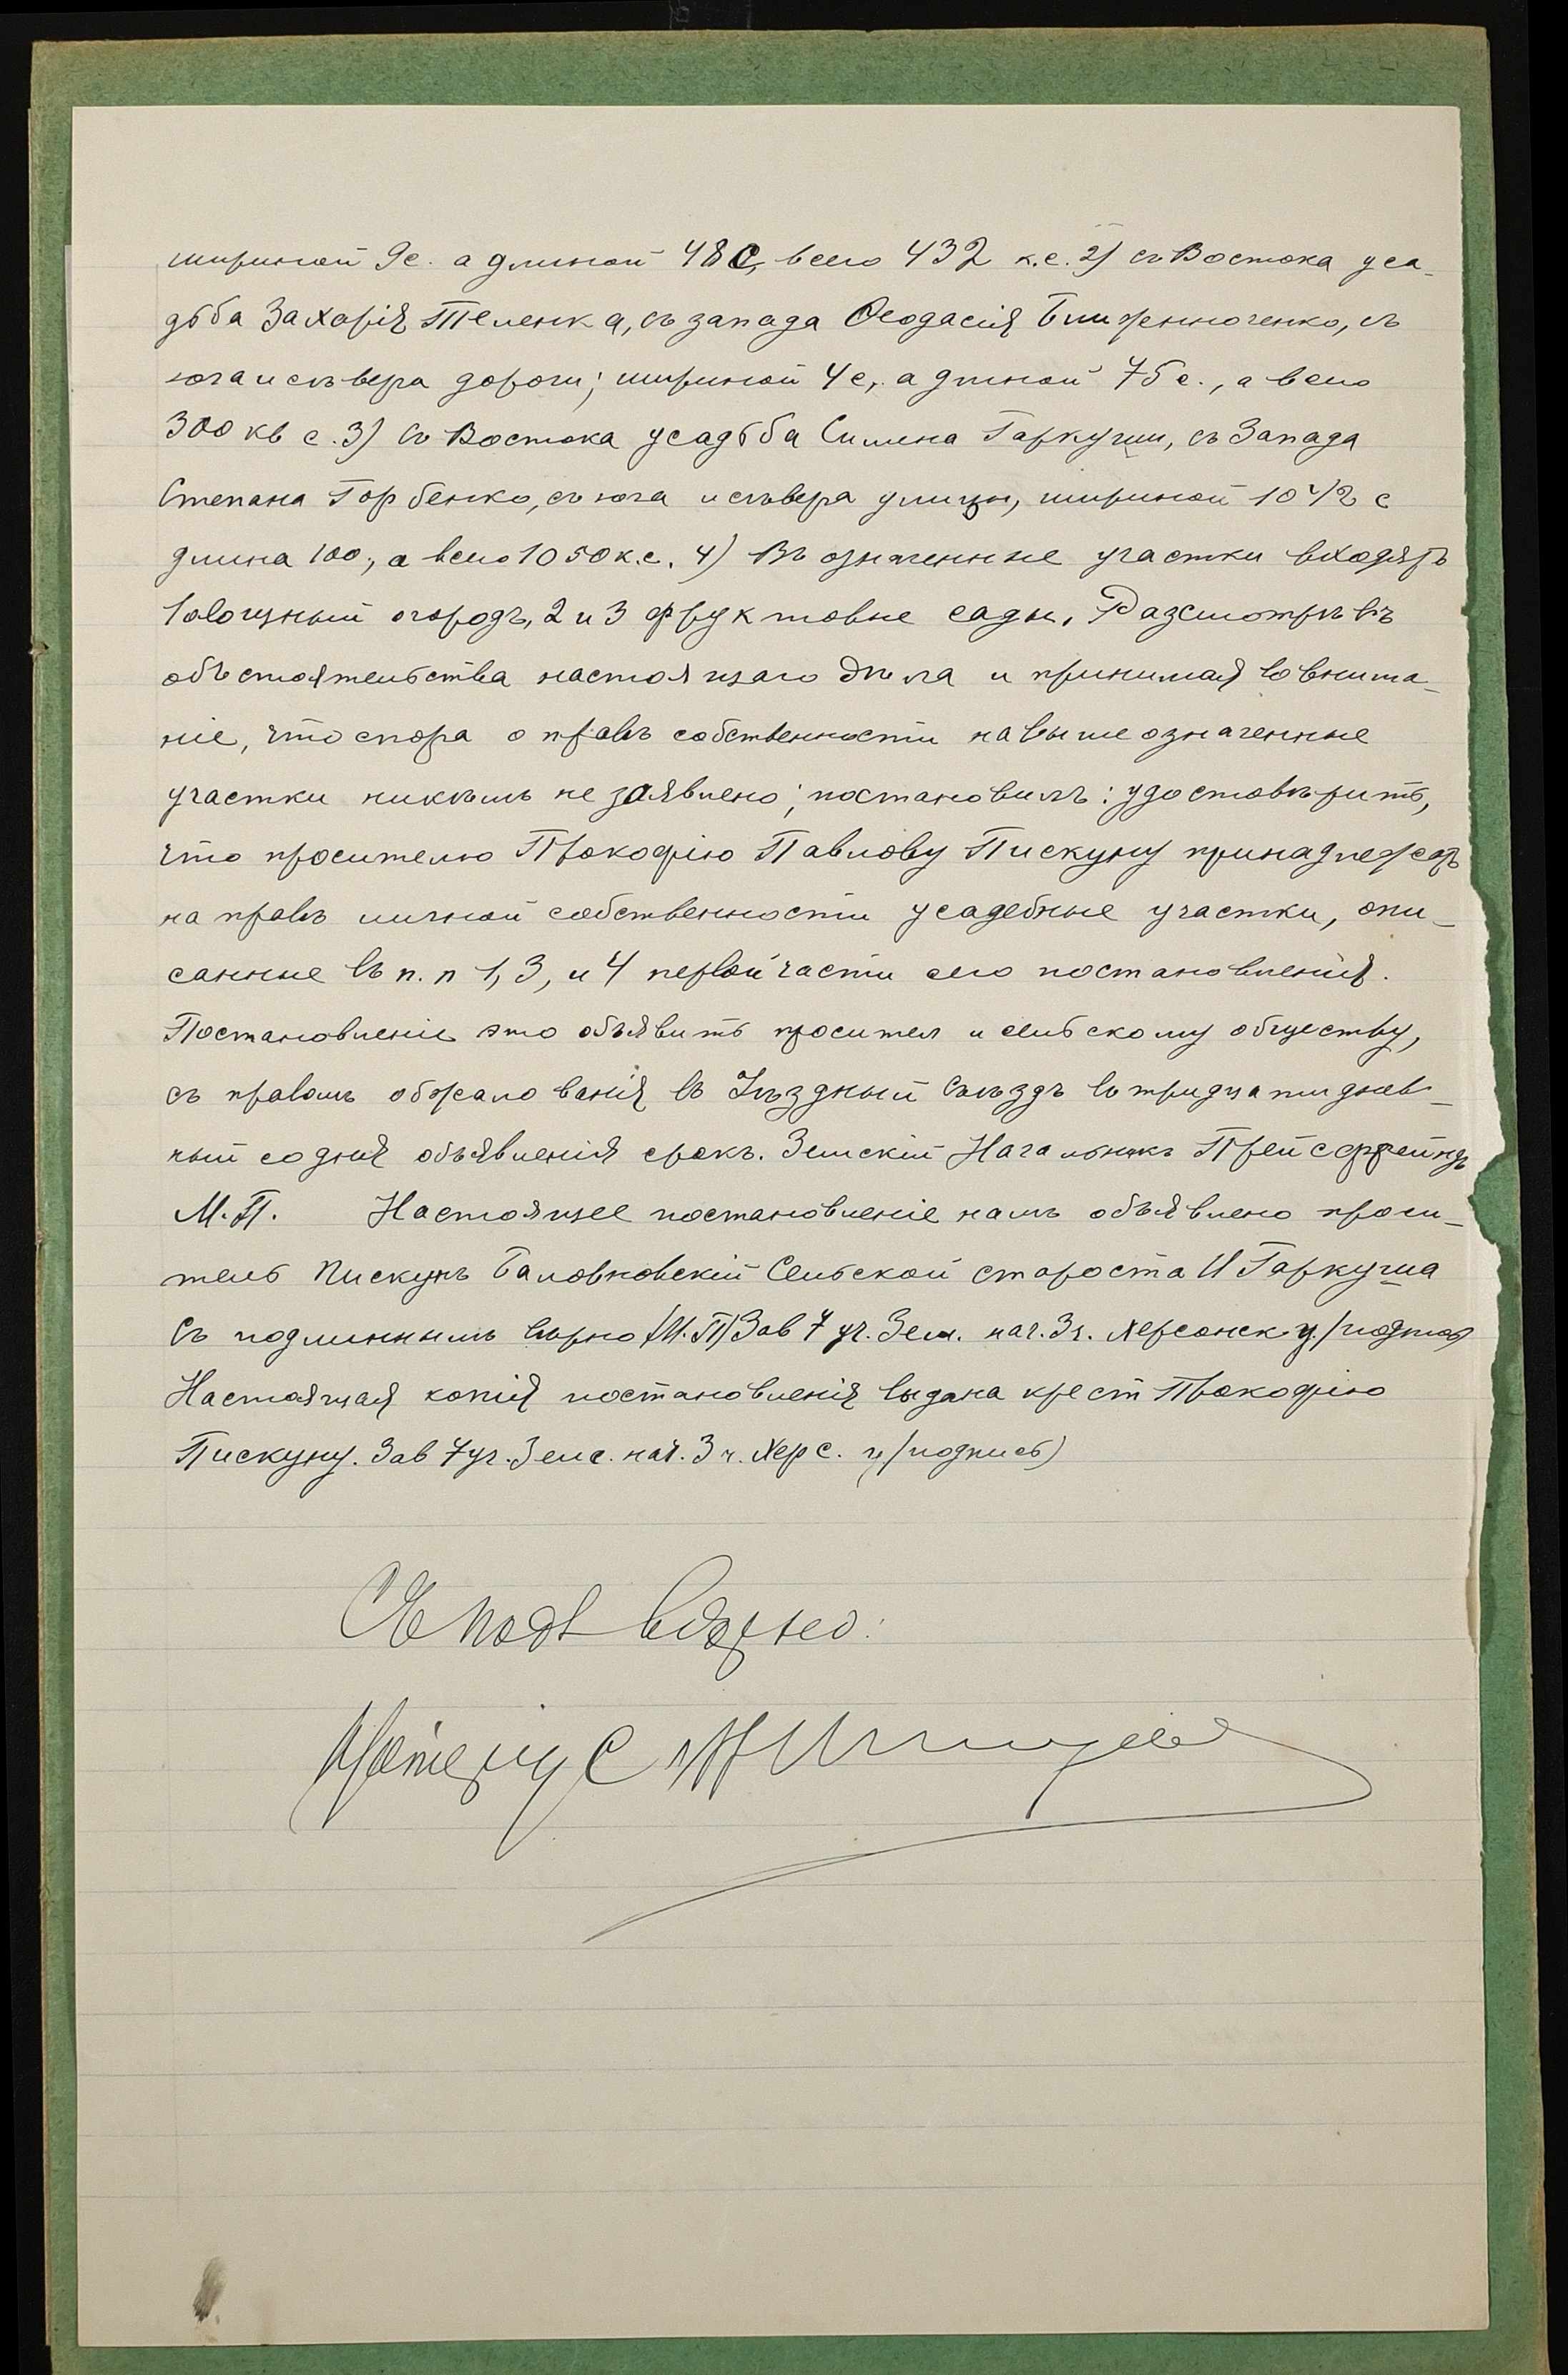 шириной 9 с. а длиной 48 с, всего 432 к.с. 2) съ Востока уса-
дьба Захарія Теленка, съ запада Ѳеодосія, съ
юга и сѣвера дороги; шириной 4 с, а длиной 75 с., а всего
300 кв с. 3) Съ Востока усадьба Симена Гаркуши, съ Запада
Степана Горбенко, съ юга и сѣвера улицы, шириной 10 1/2 с
длина 100, а всего 1050 к.с. 4) Въ означенные участки входятъ
1 овощный огородъ, 2 и 3 фруктовые сады. Разсмотрѣвъ
объстоятельства настоящаго дѣла и принимая во внима-
ніе, что спора о правѣ собственности на вышеозначенные
участки никѣмъ не заявлено; постановилъ: удостовѣрить,
что просителю Прокофію Павлову Пискуну принадлежатъ
на правѣ личной собственности усадебные участки, опи-
санные въ п. п 1, 3, и 4 первой части сего постановленія.
Постановленіе это объявить просител и сельскому обществу,
съ правомъ обжалованія въ Уѣздный Съѣздъ въ тридцатиднев-
ный со дня объявленія срокъ. Земскій Начальникъ Прейсфрейндъ
М. П. Настоящее постановленіе намъ объявлено проси-
тель Пискунъ Баловновскій Сельской староста И Гаркуша
Съ подлиннымъ вѣрно (М. П) Зав 7 уч. Зем. нач. Зг. Херсонск у. (подпись)
Настоящая копія постановленія выдана крест Прокофію
Пискуну. Зав 7 уч. Земс. нач. Херс. у (подпись)
Съ подл вѣрно:
Нотаріусъ